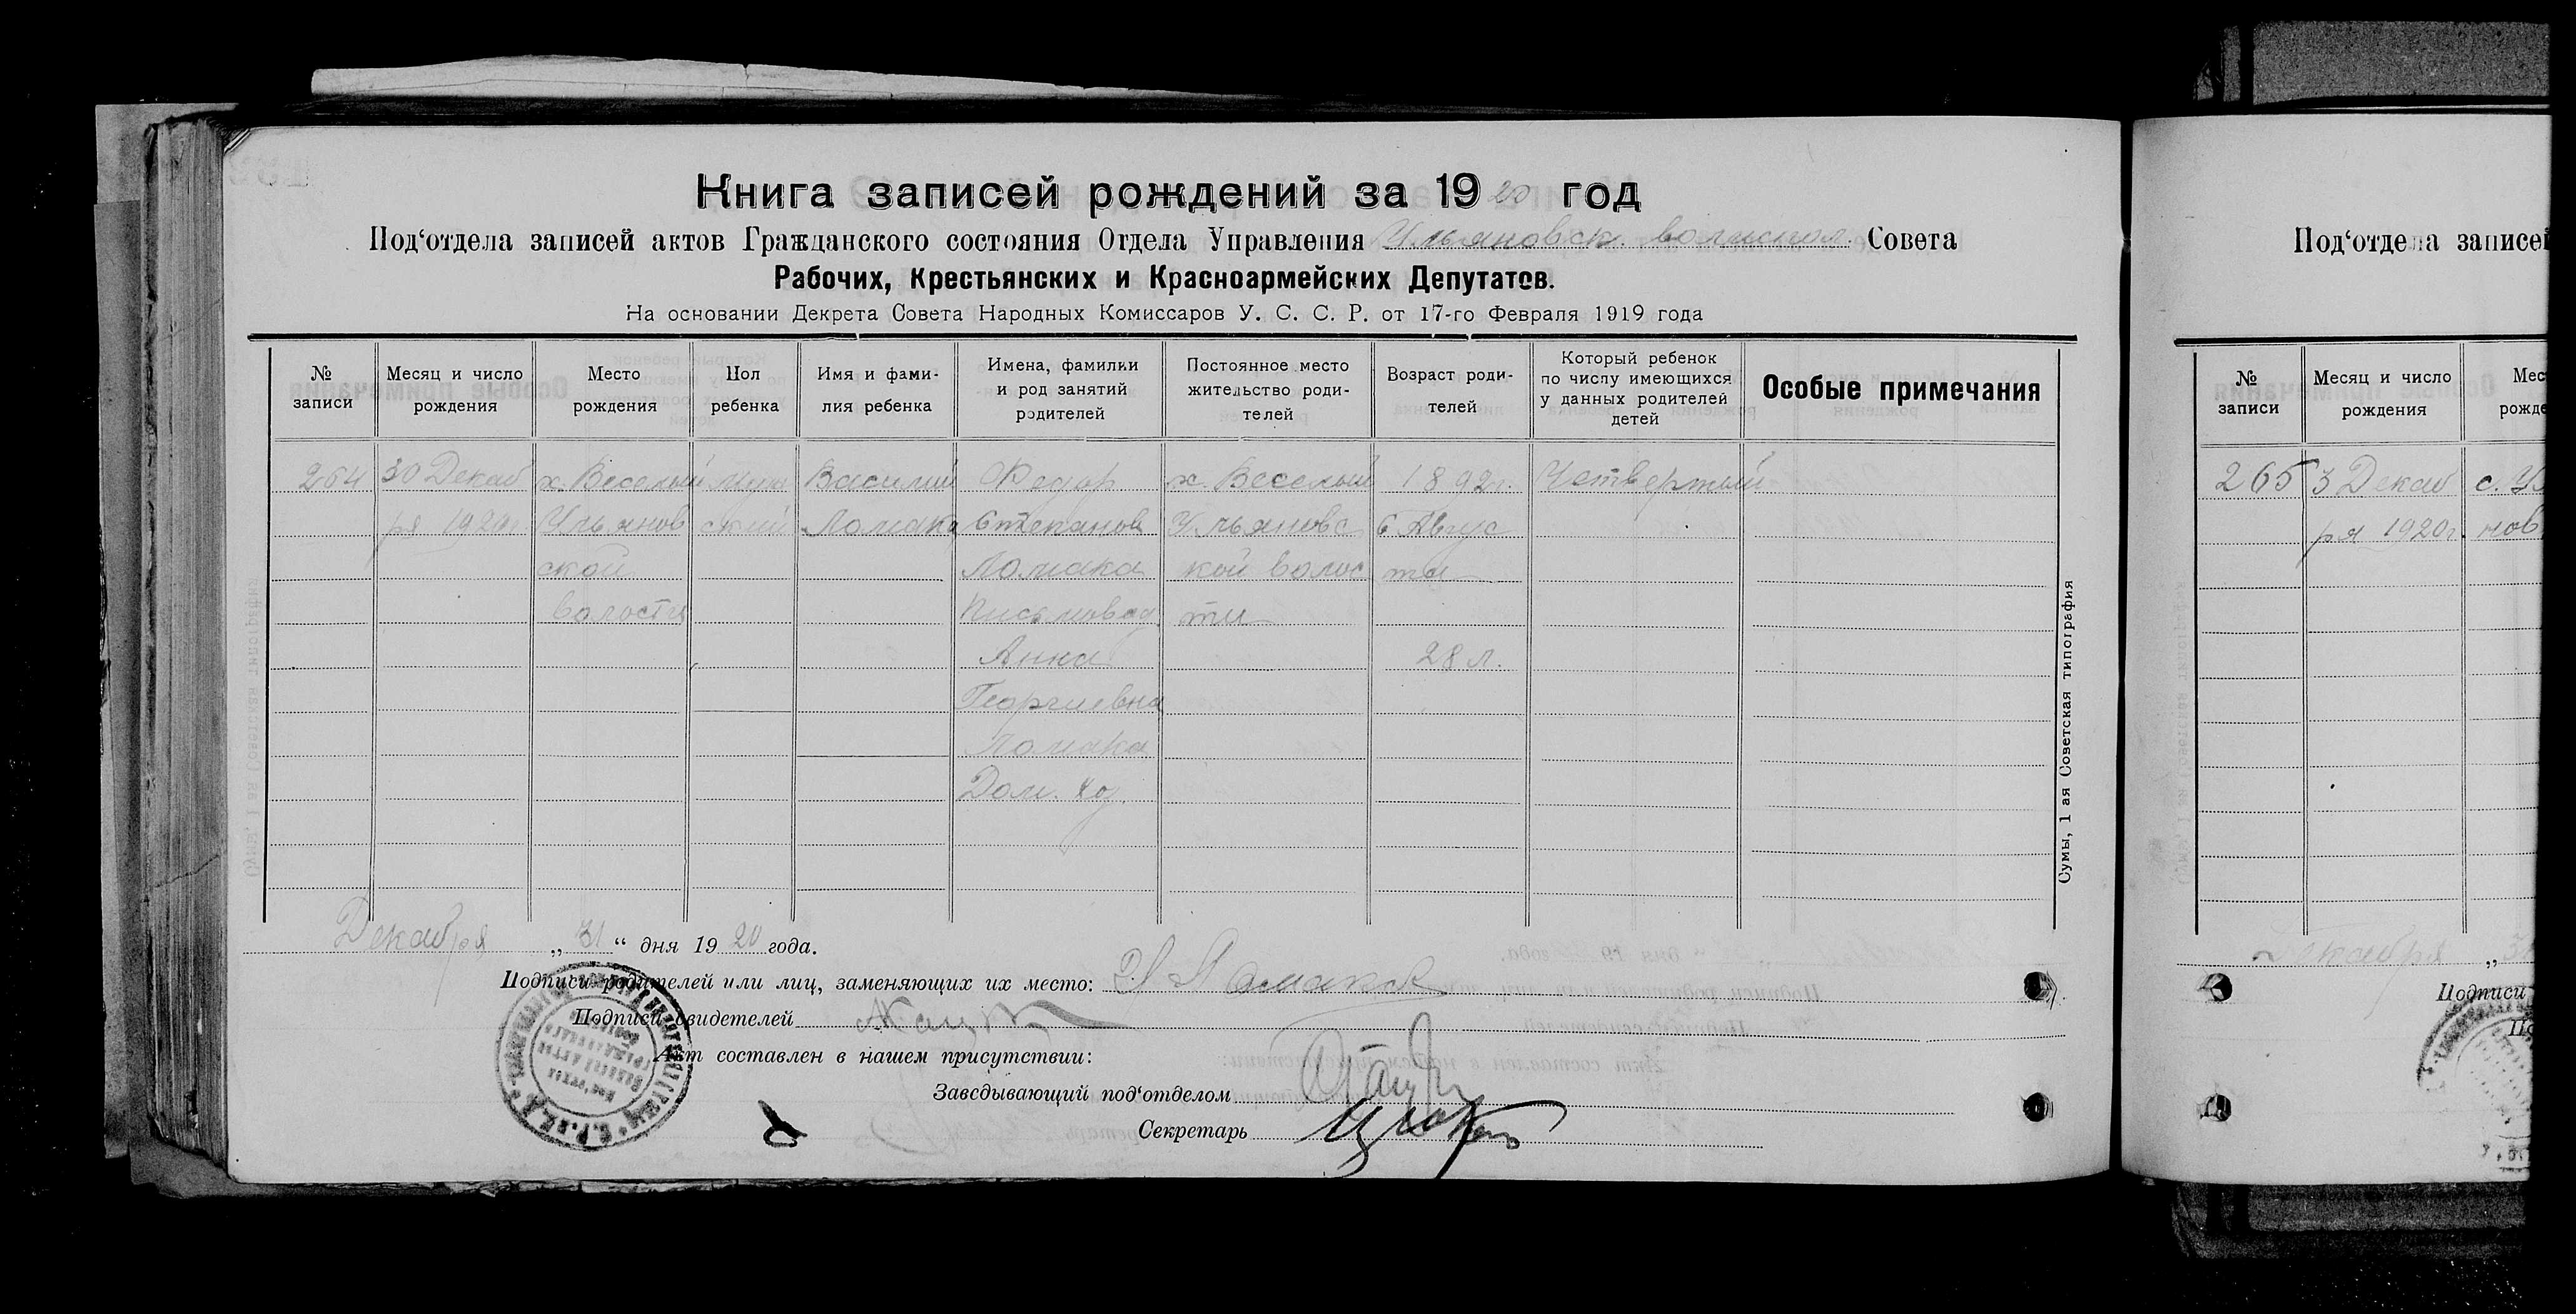 Книга записей рождений за 1920 год
Под‘отдела записей актов Гражданского состояния Отдела Управления Ульяновск. волиспол. Совета
Рабочих, Крестьянских и Красноармейских Депутатов.
На основании Декрета Совета Народных Комиссаров У. С. С. Р. от 17-го Февраля 1919 года
№ записи
Месяц и число рождения
Место рождения
Пол ребенка
Имя и фами-
лия ребенка
Имена, фамилии
и род занятий
родителей
Постоянное место
жительство роди-
телей
Возраст роди-
телей
Который ребенок
по числу имеющихся
у данных родителей
детей
Особые примечания
264
30 Декаб
ря 1920г.
х. Веселый
Ульянов
ской
волости
Муж
ский
Василий
Ломака
Федор
Степанов
Ломака
Письмовод.
Анна
Георгиевна
Ломака
Дом. хоз.
х. Веселый
Ульяновс
кой волос
ти
1892г.
6 Авгус
та
28 л.
Четвертый
Сумы, 1 ая Советская типография
Декабря „31“ дня 1920 года.
Подписи родителей или лиц, заменяющих их место: Ломака
Подписи свидетелей
Акт составлен в нашем присутствии:
Заведывающий под‘отделом
Секретарь
Под‘отдела записей
№ записи
Месяц и число рождения
Мес
рожде
265
3 Декаб
ря 1920г.
с. Ул
нов
Декабря „31
Подписи